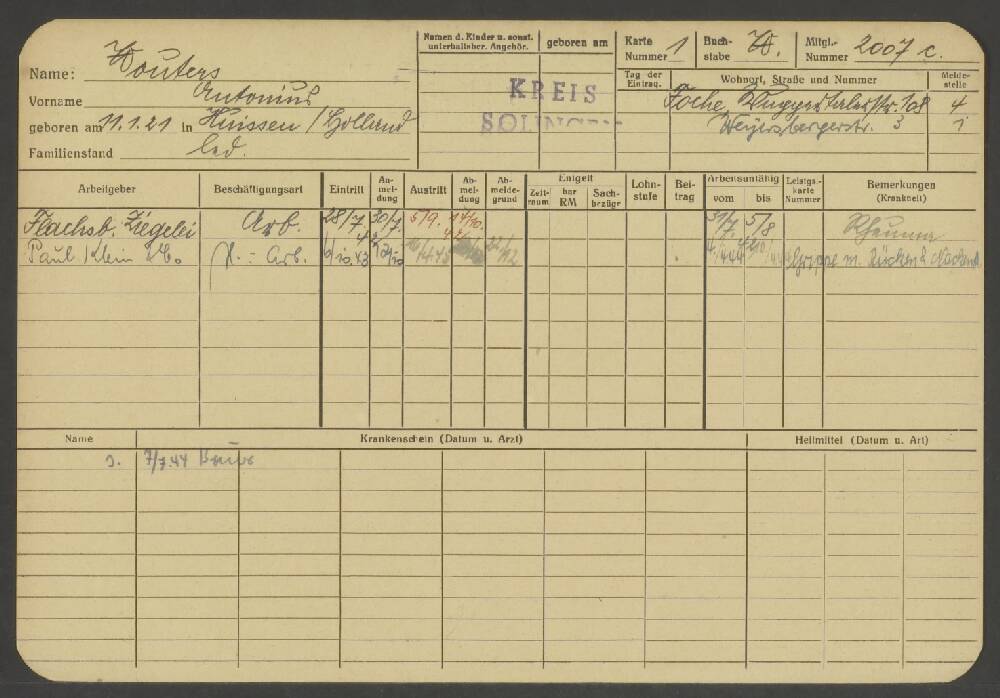 Namen d. Kinder u. sonst. unterhaltsber. Angehör.
geboren am
Karte Nummer 1
Buchstabe W.
Mitgl.-Nummer 2007 c.
Name: Wouters
Vorname Antonius
geboren am 11.1.21 in Huissen / Holland
Familienstand led.
KREIS
SOLINGEN
Tag der Eintrag.
Wohnort, Straße und Nummer
Meldestelle
Foche, Wuppertalerstr. 108 4
Weyersbergerstr. 3 1
Arbeitgeber
Beschäftigungsart
Eintritt
Anmeldung
Austritt
Abmeldung
Abmeldegrund
Entgelt
Zeitraum
bar RM
Sachbezüge
Lohnstufe
Beitrag
Arbeitsunfähig
vom
bis
Leistgs.-karte Nummer
Bemerkungen (Krankheit)
Flachsb. Ziegelei Arb. 28/7. 30/7. 5/9. 14/10. 31/7. 5/8 Rheuma
Paul Klein & Co H. - Arb. 6/10.43
Name
Krankenschein (Datum u. Arzt)
Heilmittel (Datum u. Art)
7/7.44